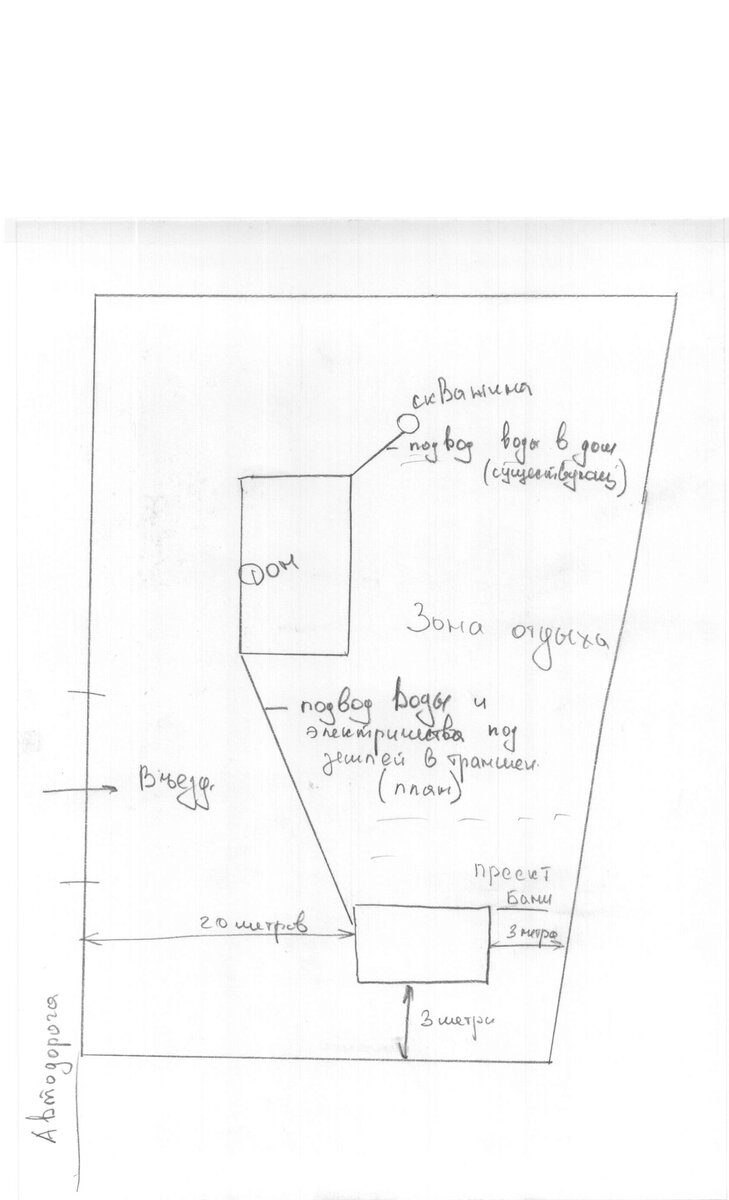 скважина
подвод воды в дом
(существующ)
Дом
Зона отдыха
подвод воды и
электричества под
землей в траншеи.
(план)
Въезд.
проект
Бани
20 метров
3 метра
3 метра
Автодорога